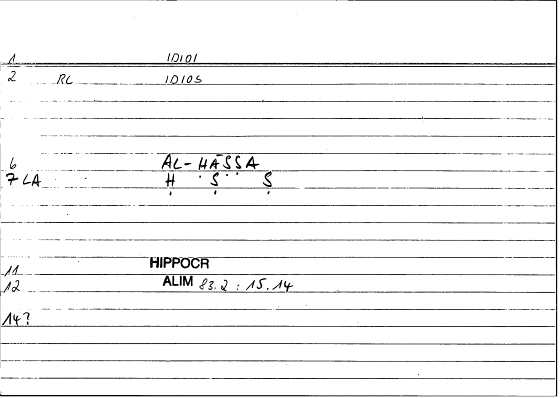 1 IDIOI
2 RL IDIOS
6 AL-ḪĀṢṢA
7 LA Ḫ Ṣ Ṣ
11 HIPPOCR
12 ALIM 83.2 : 15.14
14?